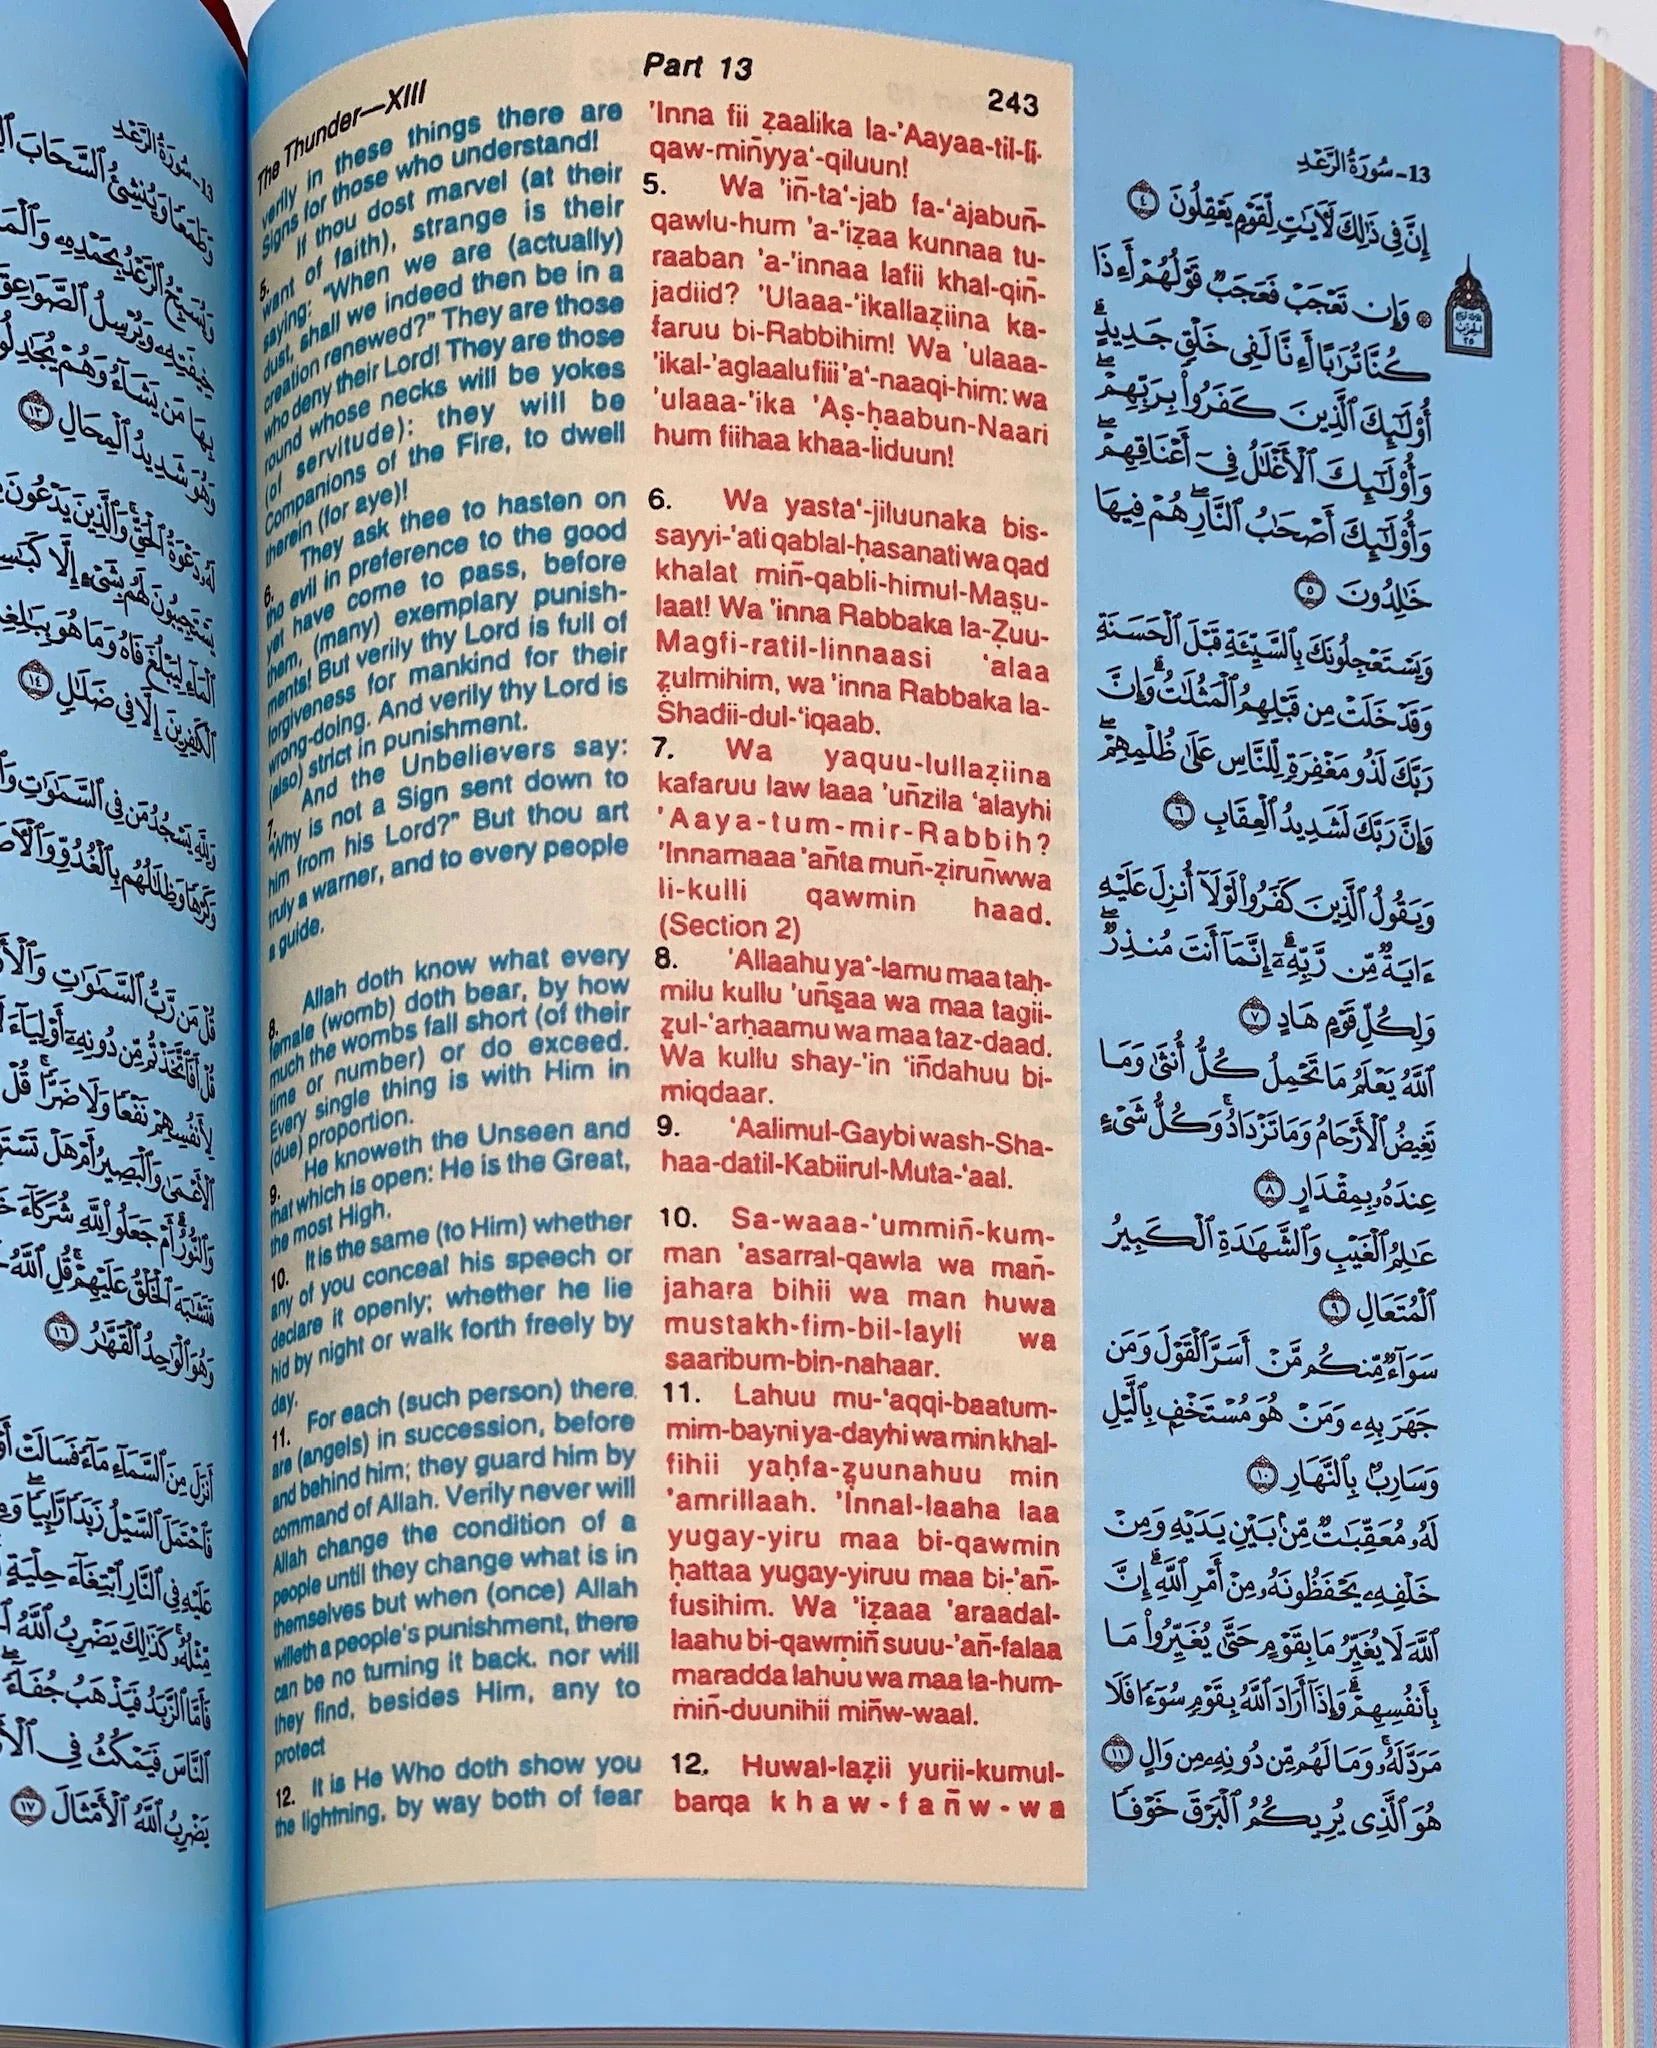 The Thunder—XIII
Part 13
243
verily in these things there are
Signs for those who understand!
5. If thou dost marvel (at their
want of faith), strange is their
saying: "When we are (actually)
dust, shall we indeed then be in a
creation renewed?" They are those
who deny their Lord! They are those
round whose necks will be yokes
(of servitude): they will be
Companions of the Fire, to dwell
therein (for aye)!
6. They ask thee to hasten on
the evil in preference to the good
yet have come to pass, before
them, (many) exemplary punish-
ments! But verily thy Lord is full of
forgiveness for mankind for their
wrong-doing. And verily thy Lord is
(also) strict in punishment.
7. And the Unbelievers say:
"Why is not a Sign sent down to
him from his Lord?" But thou art
truly a warner, and to every people
a guide.
8. Allah doth know what every
female (womb) doth bear, by how
much the wombs fall short (of their
time or number) or do exceed.
Every single thing is with Him in
(due) proportion.
9. He knoweth the Unseen and
that which is open: He is the Great,
the most High.
10. It is the same (to Him) whether
any of you conceal his speech or
declare it openly; whether he lie
hid by night or walk forth freely by
day.
11. For each (such person) there
are (angels) in succession, before
and behind him; they guard him by
command of Allah. Verily never will
Allah change the condition of a
people until they change what is in
themselves but when (once) Allah
willeth a people's punishment, there
can be no turning it back. nor will
they find, besides Him, any to
protect
12. It is He Who doth show you
the lightning, by way both of fear
'Inna fii ẓaalika la-'Aayaa-til-li-
qaw-miñyya‘-qiluun!
5. Wa 'iñ-ta‘-jab fa-‘ajabuñ-
qawlu-hum 'a-'iẓaa kunnaa tu-
raaban 'a-'innaa lafii khal-qiñ-
jadiid? 'Ulaaa-'ikallaẓiina ka-
faruu bi-Rabbihim! Wa 'ulaaa-
'ikal-'aglaalu fiii 'a‘-naaqi-him: wa
'ulaaa-'ika 'Aṣ-ḥaabun-Naari
hum fiihaa khaa-liduun!
6. Wa yasta‘-jiluunaka bis-
sayyi-'ati qablal-ḥasanati wa qad
khalat miñ-qabli-himul-Maṣu-
laat! Wa 'inna Rabbaka la-Ẓuu-
Magfi-ratil-linnaasi ‘alaa
ẓulmihim, wa 'inna Rabbaka la-
Shadii-dul-‘iqaab.
7. Wa yaquu-lullaẓiina
kafaruu law laaa 'uñzila ‘alayhi
'Aaya-tum-mir-Rabbih?
'Innamaaa 'añta muñ-ẓiruñwwa
li-kulli qawmin haad.
(Section 2)
8. 'Allaahu ya‘-lamu maa taḥ-
milu kullu 'uñṣaa wa maa tagii-
ẓul-'arḥaamu wa maa taz-daad.
Wa kullu shay-'in ‘iñdahuu bi-
miqdaar.
9. ‘Aalimul-Gaybi wash-Sha-
haa-datil-Kabiirul-Muta-‘aal.
10. Sa-waaa-'ummiñ-kum-
man 'asarral-qawla wa mañ-
jahara bihii wa man huwa
mustakh-fim-bil-layli wa
saaribum-bin-nahaar.
11. Lahuu mu-‘aqqi-baatum-
mim-bayni ya-dayhi wa min khal-
fihii yaḥfa-ẓuunahuu min
'amrillaah. 'Innal-laaha laa
yugay-yiru maa bi-qawmin
ḥattaa yugay-yiruu maa bi-'añ-
fusihim. Wa 'iẓaaa 'araadal-
laahu bi-qawmiñ suuu-'añ-falaa
maradda lahuu wa maa la-hum-
miñ-duunihii miñw-waal.
12. Huwal-laẓii yurii-kumul-
barqa khaw-fañw-wa
13- سُورَةُ الرَّعْدِ
إِنَّ فِى ذَٰلِكَ لَـَٔايَـٰتٍ لِّقَوْمٍ يَعْقِلُونَ ٤
۞ وَإِن تَعْجَبْ فَعَجَبٌ قَوْلُهُمْ أَءِذَا
كُنَّا تُرَٰبًا أَءِنَّا لَفِى خَلْقٍ جَدِيدٍ ۗ
أُو۟لَـٰٓئِكَ ٱلَّذِينَ كَفَرُوا۟ بِرَبِّهِمْ ۖ
وَأُو۟لَـٰٓئِكَ ٱلْأَغْلَـٰلُ فِىٓ أَعْنَاقِهِمْ ۖ
وَأُو۟لَـٰٓئِكَ أَصْحَـٰبُ ٱلنَّارِ ۖ هُمْ فِيهَا
خَـٰلِدُونَ ٥
وَيَسْتَعْجِلُونَكَ بِٱلسَّيِّئَةِ قَبْلَ ٱلْحَسَنَةِ
وَقَدْ خَلَتْ مِن قَبْلِهِمُ ٱلْمَثُلَـٰتُ ۗ وَإِنَّ
رَبَّكَ لَذُو مَغْفِرَةٍ لِّلنَّاسِ عَلَىٰ ظُلْمِهِمْ ۖ
وَإِنَّ رَبَّكَ لَشَدِيدُ ٱلْعِقَابِ ٦
وَيَقُولُ ٱلَّذِينَ كَفَرُوا۟ لَوْلَآ أُنزِلَ عَلَيْهِ
ءَايَةٌ مِّن رَّبِّهِۦٓ ۗ إِنَّمَآ أَنتَ مُنذِرٌ ۖ
وَلِكُلِّ قَوْمٍ هَادٍ ٧
ٱللَّهُ يَعْلَمُ مَا تَحْمِلُ كُلُّ أُنثَىٰ وَمَا
تَغِيضُ ٱلْأَرْحَامُ وَمَا تَزْدَادُ ۖ وَكُلُّ شَىْءٍ
عِندَهُۥ بِمِقْدَارٍ ٨
عَـٰلِمُ ٱلْغَيْبِ وَٱلشَّهَـٰدَةِ ٱلْكَبِيرُ
ٱلْمُتَعَالِ ٩
سَوَآءٌ مِّنكُم مَّنْ أَسَرَّ ٱلْقَوْلَ وَمَن
جَهَرَ بِهِۦ وَمَنْ هُوَ مُسْتَخْفٍۭ بِٱلَّيْلِ
وَسَارِبٌۢ بِٱلنَّهَارِ ١٠
لَهُۥ مُعَقِّبَـٰتٌ مِّنۢ بَيْنِ يَدَيْهِ وَمِنْ
خَلْفِهِۦ يَحْفَظُونَهُۥ مِنْ أَمْرِ ٱللَّهِ ۗ إِنَّ
ٱللَّهَ لَا يُغَيِّرُ مَا بِقَوْمٍ حَتَّىٰ يُغَيِّرُوا۟ مَا
بِأَنفُسِهِمْ ۗ وَإِذَآ أَرَادَ ٱللَّهُ بِقَوْمٍ سُوٓءًا فَلَا
مَرَدَّ لَهُۥ ۚ وَمَا لَهُم مِّن دُونِهِۦ مِن وَالٍ ١١
هُوَ ٱلَّذِى يُرِيكُمُ ٱلْبَرْقَ خَوْفًا
13- سُورَةُ الرَّعْدِ
وَطَمَعًا وَيُنشِئُ ٱلسَّحَابَ
وَيُسَبِّحُ ٱلرَّعْدُ بِحَمْدِهِۦ
خِيفَتِهِۦ وَيُرْسِلُ ٱلصَّوَٰعِقَ
بِهَا مَن يَشَآءُ وَهُمْ يُجَـٰدِلُونَ
وَهُوَ شَدِيدُ ٱلْمِحَالِ ١٣
لَهُۥ دَعْوَةُ ٱلْحَقِّ ۖ وَٱلَّذِينَ يَدْعُونَ
يَسْتَجِيبُونَ لَهُم بِشَىْءٍ إِلَّا
ٱلْمَآءِ لِيَبْلُغَ فَاهُ وَمَا هُوَ بِبَـٰلِغِهِ
ٱلْكَـٰفِرِينَ إِلَّا فِى ضَلَـٰلٍ ١٤
وَلِلَّهِ يَسْجُدُ مَن فِى ٱلسَّمَـٰوَٰتِ
وَكَرْهًا وَظِلَـٰلُهُم بِٱلْغُدُوِّ
قُلْ مَن رَّبُّ ٱلسَّمَـٰوَٰتِ
قُلْ أَفَٱتَّخَذْتُم مِّن دُونِهِۦٓ أَوْلِيَآءَ
لِأَنفُسِهِمْ نَفْعًا وَلَا ضَرًّا ۚ قُلْ
ٱلْأَعْمَىٰ وَٱلْبَصِيرُ أَمْ هَلْ
وَٱلنُّورُ ۗ أَمْ جَعَلُوا۟ لِلَّهِ شُرَكَآءَ
فَتَشَـٰبَهَ ٱلْخَلْقُ عَلَيْهِمْ ۚ قُلِ ٱللَّهُ
وَهُوَ ٱلْوَٰحِدُ ٱلْقَهَّـٰرُ ١٦
أَنزَلَ مِنَ ٱلسَّمَآءِ مَآءً فَسَالَتْ
فَٱحْتَمَلَ ٱلسَّيْلُ زَبَدًا رَّابِيًا ۚ
عَلَيْهِ فِى ٱلنَّارِ ٱبْتِغَآءَ حِلْيَةٍ
مِّثْلُهُۥ ۚ كَذَٰلِكَ يَضْرِبُ ٱللَّهُ
فَأَمَّا ٱلزَّبَدُ فَيَذْهَبُ جُفَآءً
ٱلنَّاسَ فَيَمْكُثُ فِى
يَضْرِبُ ٱللَّهُ ٱلْأَمْثَالَ ١٧